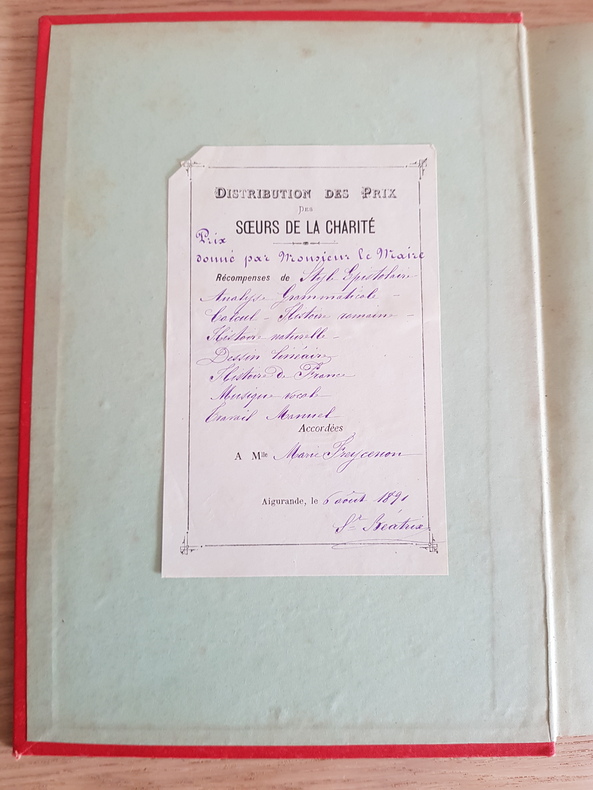 DISTRIBUTION DES PRIX
DES
SŒURS DE LA CHARITÉ
Prix
donné par Monsieur le Maire
Récompenses de Style Epistolaire
Analyse Grammaticale –
Calcul – Histoire romaine –
Histoire naturelle –
Dessin linéaire
Histoire de France
Musique vocale
Travail Manuel
Accordées
A Mlle Marie
Aigurande, le 6 août 1891
Sr Béatrix